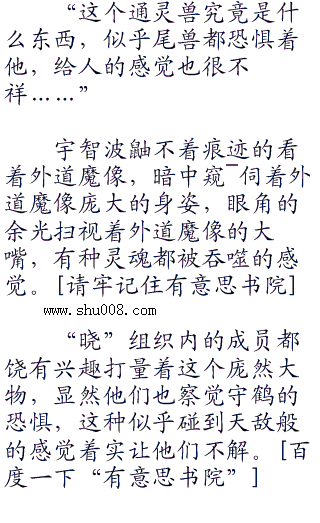 “这个通灵兽究竟是什
么东西，似乎尾兽都恐惧着
他，给人的感觉也很不
祥……”
宇智波鼬不着痕迹的看
着外道魔像，暗中窥¯伺着外
道魔像庞大的身姿，眼角的
余光扫视着外道魔像的大
嘴，有种灵魂都被吞噬的感
觉。[请牢记住有意思书院]
www.shu008.com
“晓”组织内的成员都
饶有兴趣打量着这个庞然大
物，显然他们也察觉守鹤的
恐惧，这种似乎碰到天敌般
的感觉着实让他们不解。[百
度一下“有意思书院”]